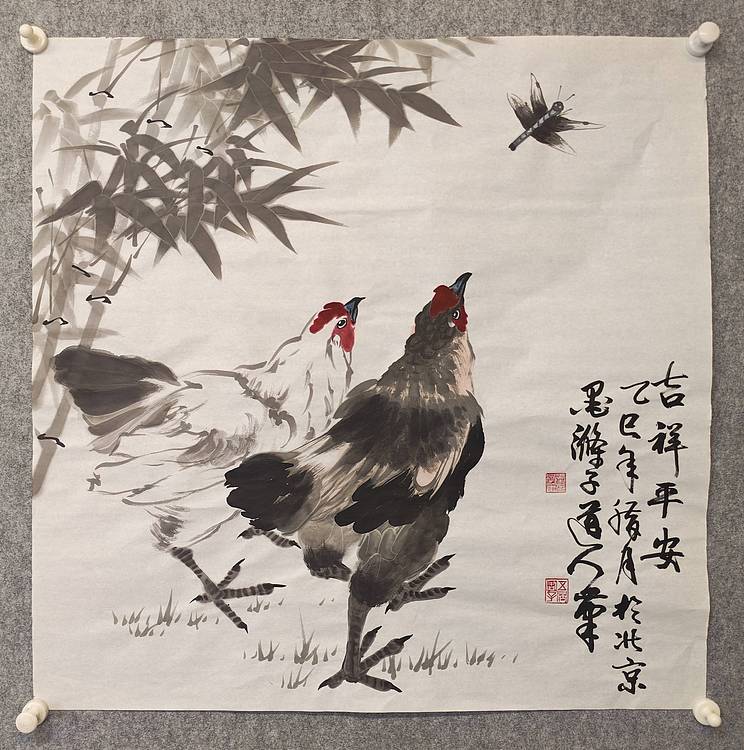 吉祥平安
乙巳年腊月於北京
墨滌子道人筆